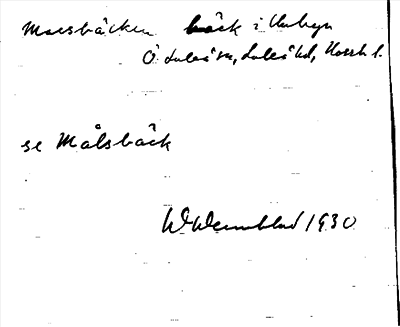 Maersbäcken bäck i Unbyn
Ö. Luleå sn, Luleå td, Norrb. l.
se Målsbäck
W Wennblad 1930